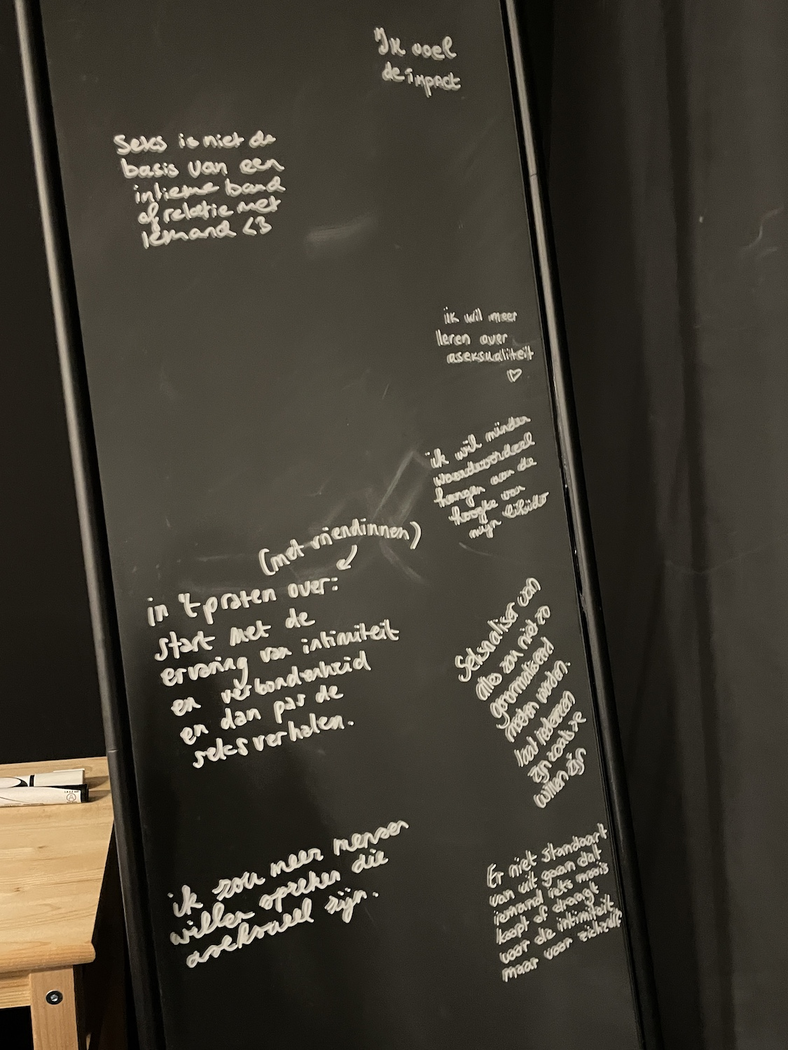 Ik voel
de impact
Seks is niet de
basis van een
intieme band
of relatie met
iemand <3
ik wil meer
leren over
aseksualiteit
♡
ik wil minder
waardeoordeel
hangen aan de
hoogte van
mijn libido
(met vriendinnen)
in 't praten over:
start met de
ervaring van intimiteit
en verbondenheid
en dan pas de
seksverhalen.
Seksualiser van
alles zou niet zo
genormaliseerd
moeten worden.
laat iedereen
zijn zoals ze
willen zijn
ik zou meer mensen
willen spreken die
aseksueel zijn.
Er niet standaart
van uit gaan dat
iemand iets moois
koopt of draagt
voor de intimiteit
maar voor zichzelf